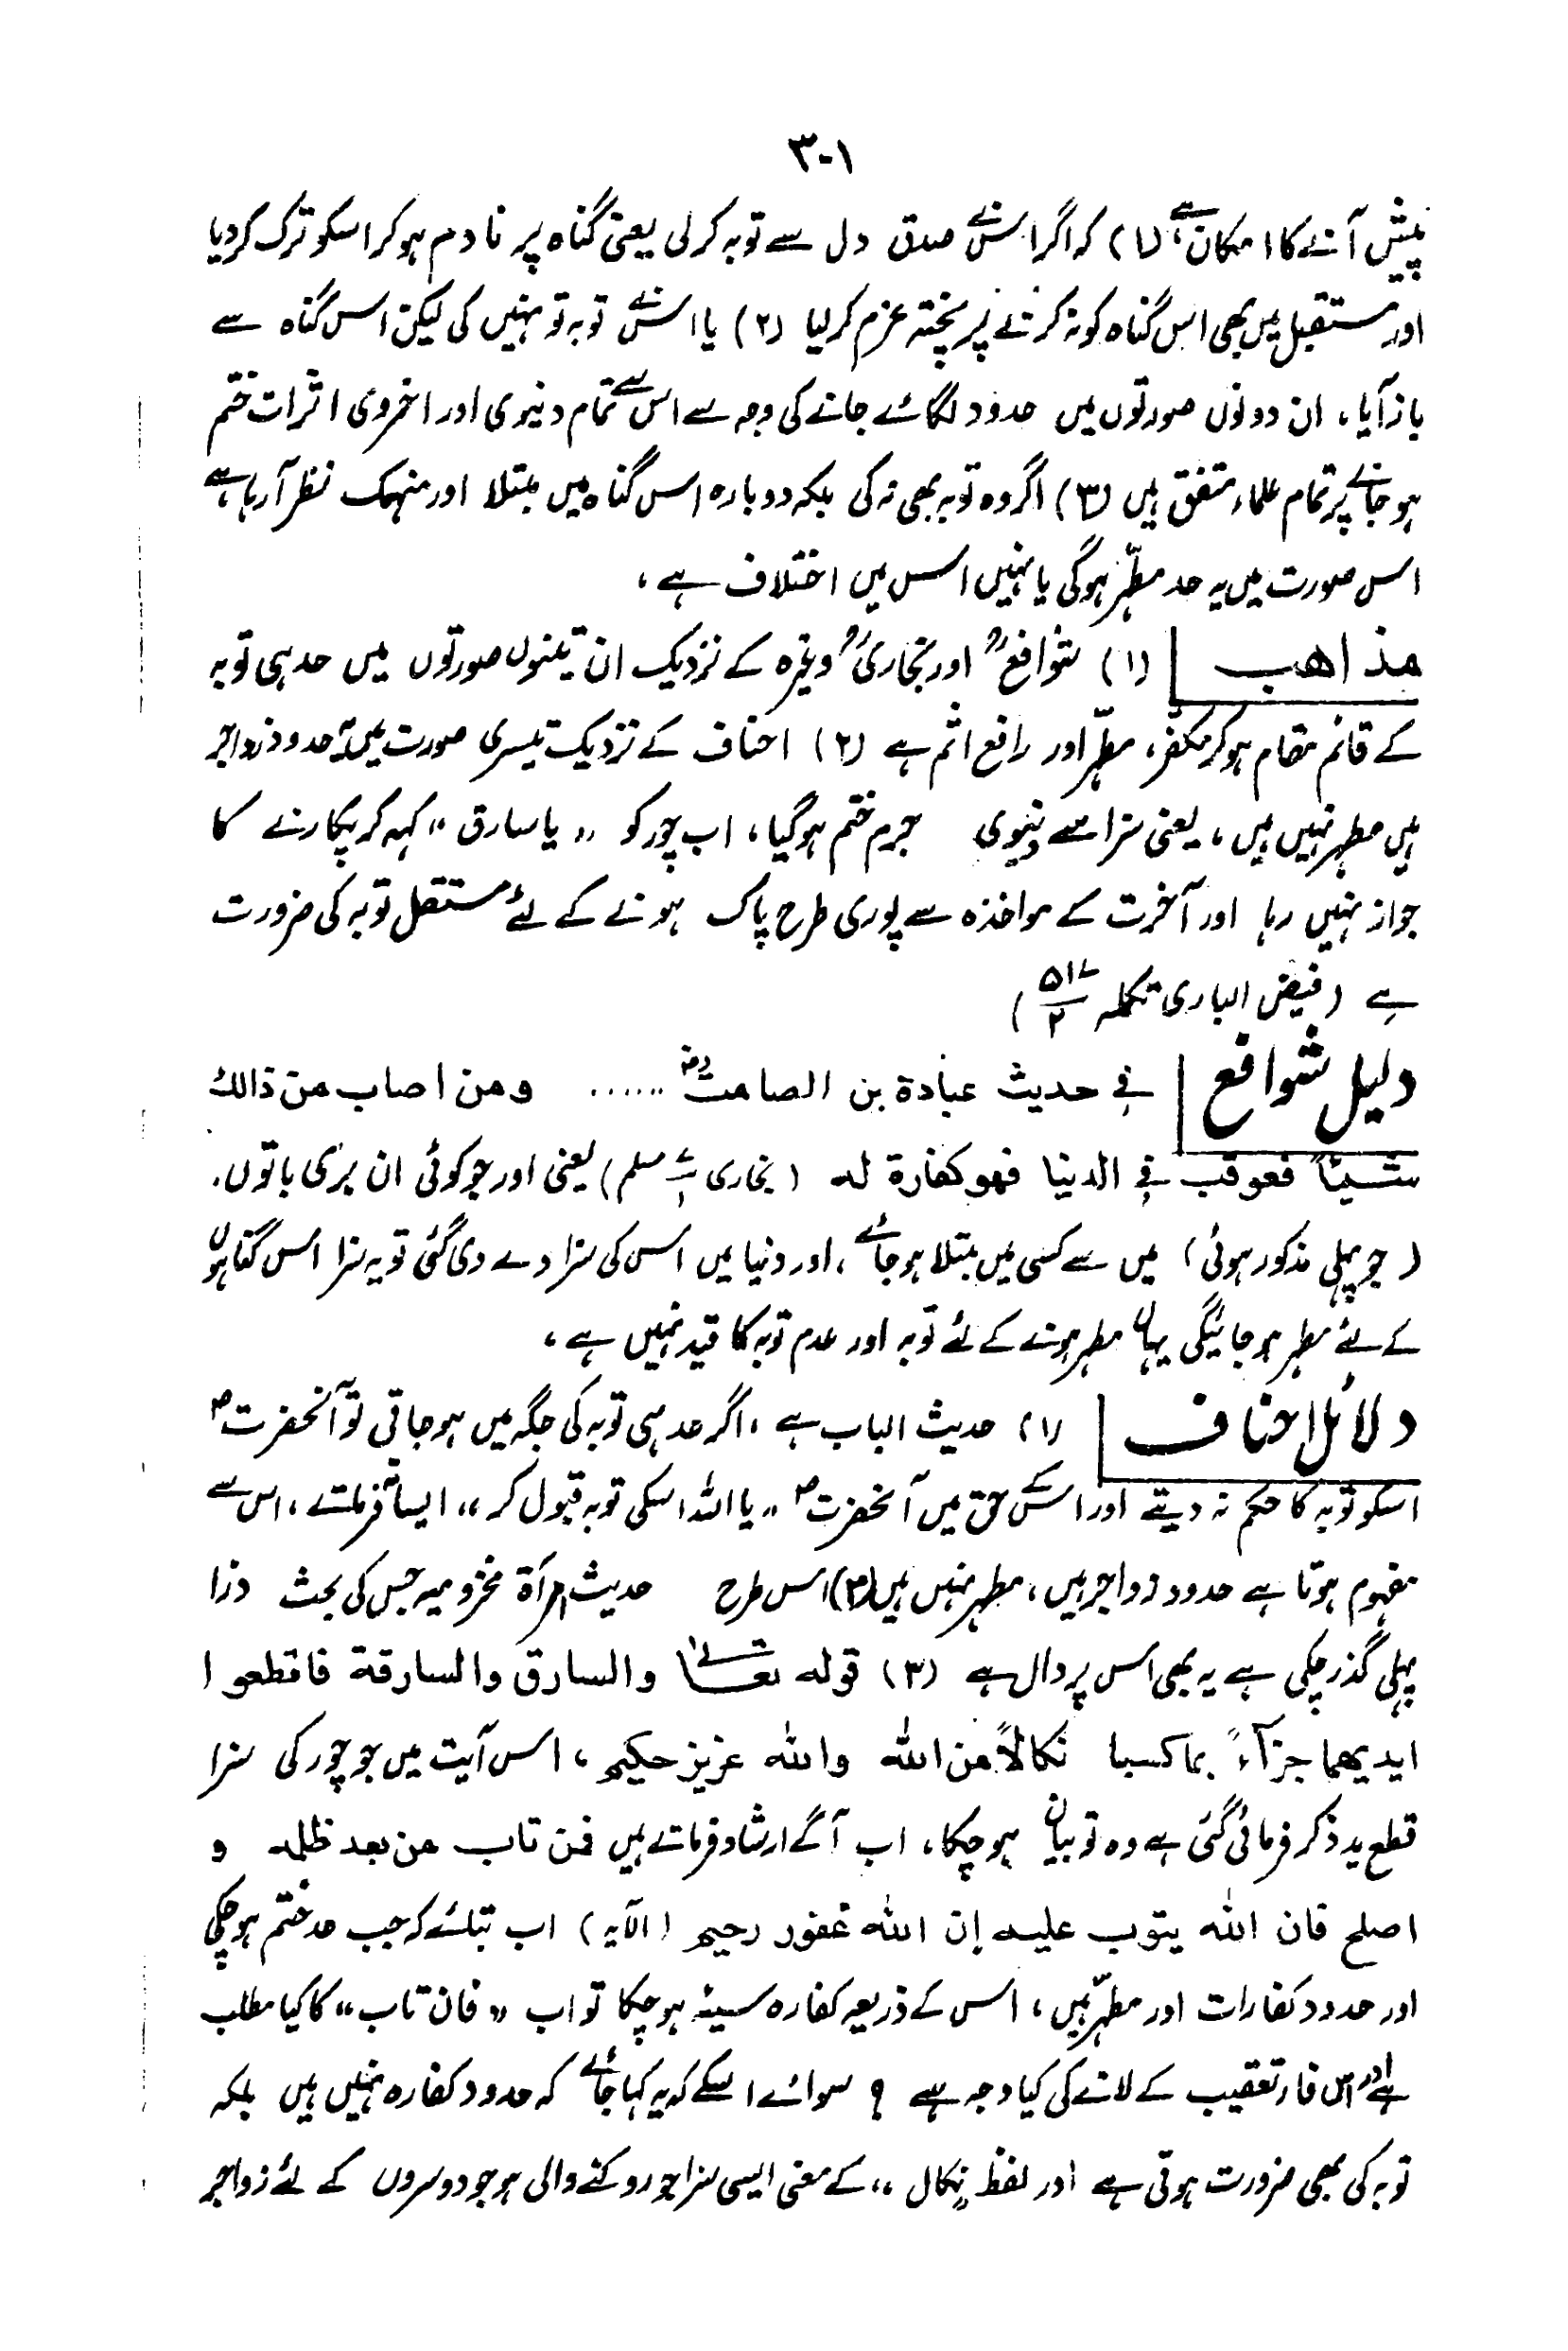 ۳۰۱
پیش آنے کا امکان ہے، (۱) کہ اگر اس نے صدق دل سے توبہ کرلی یعنی گناہ پر نادم ہوکر اسکو ترک کردیا
اور مستقبل میں بھی اس گناہ کو نہ کرنے پر پختہ عزم کرلیا (۲) یا اس نے توبہ تو نہیں کی لیکن اس گناہ سے
باز آیا، ان دونوں صورتوں میں حدود لگائے جانے کی وجہ سے اس سے تمام دنیوی اور اخروی اثرات ختم
ہوجانے پر تمام علماء متفق ہیں (۳) اگر وہ توبہ بھی نہ کی بلکہ دوبارہ اس گناہ میں مبتلا اور منہمک نظر آرہا ہے
اس صورت میں یہ حد مطہّر ہوگی یا نہیں اس میں اختلاف ہے،
مذاهب (۱) شوافعؒ اور بخاریؒ وغیرہ کے نزدیک ان تینوں صورتوں میں حد ہی توبہ
کے قائم مقام ہوکر مکفّر، مطہّر اور رافع اثم ہے (۲) احناف کے نزدیک تیسری صورت میں یہ حدود زواجر
ہیں مطہر نہیں ہیں، یعنی سزا سے دنیوی جرم ختم ہوگیا، اب چور کو ״ یا سارق ״ کہہ کر پکارنے کا
جواز نہیں رہا اور آخرت کے مواخذہ سے پوری طرح پاک ہونے کے لئے مستقل توبہ کی ضرورت
ہے (فیض الباری تکملہ ۵۱۲/۲)
دلیل شوافع في حديث عبادة بن الصامتؓ ...... ومن اصاب من ذالك
شيئاً فعوقب في الدنيا فهو كفارة له (بخاری ۷/۱ مسلم) یعنی اور جو کوئی ان بری باتوں
(جو پہلی مذکور ہوئی) میں سے کسی میں مبتلا ہوجائے، اور دنیا میں اس کی سزا دے دی گئی تو یہ سزا اس گناہوں
کے لئے مطہر ہوجائیگی یہاں مطہر ہونے کے لئے توبہ اور عدم توبہ کا قید نہیں ہے،
دلائل احناف (۱) حدیث الباب ہے، اگر حد ہی توبہ کی جگہ میں ہوجاتی تو آنحضرتؐ
اسکو توبہ کا حکم نہ دیتے اور اس کے حق میں آنحضرتؐ ״یا اللہ اسکی توبہ قبول کر״ ایسا فرماتے، اس سے
مفہوم ہوتا ہے حدود زواجر ہیں، مطہر نہیں ہیں (۲) اس طرح حدیث امرأۃ مخزومیہ جس کی بحث ذرا
پہلی گذر چکی ہے یہ بھی اس پر دال ہے (۳) قوله تعالىٰ والسارق والسارقة فاقطعوا
ايديهما جزآءً بما كسبا نكالاً من الله والله عزيز حكيم، اس آیت میں جو چور کی سزا
قطع ید ذکر فرمائی گئی ہے وہ تو بیان ہوچکا، اب آگے ارشاد فرماتے ہیں فمن تاب من بعد ظلمه و
اصلح فان الله يتوب عليه إن الله غفور رحيم (الآیہ) اب بتلئے کہ جب حد ختم ہوچکی
اور حدود کفارات اور مطہّر ہیں، اس کے ذریعہ کفارہ سیئہ ہوچکا تو اب ״فان تاب״ کا کیا مطلب
ہے اور اس فاء تعقیب کے لانے کی کیا وجہ ہے ؟ سوائے اسکے کہ یہ کہا جائے کہ حدود کفارہ نہیں ہیں بلکہ
توبہ کی بھی ضرورت ہوتی ہے اور لفظ ״نکال״ کے معنی ایسی سزا جو روکنے والی ہو جو دوسروں کے لئے زواجر